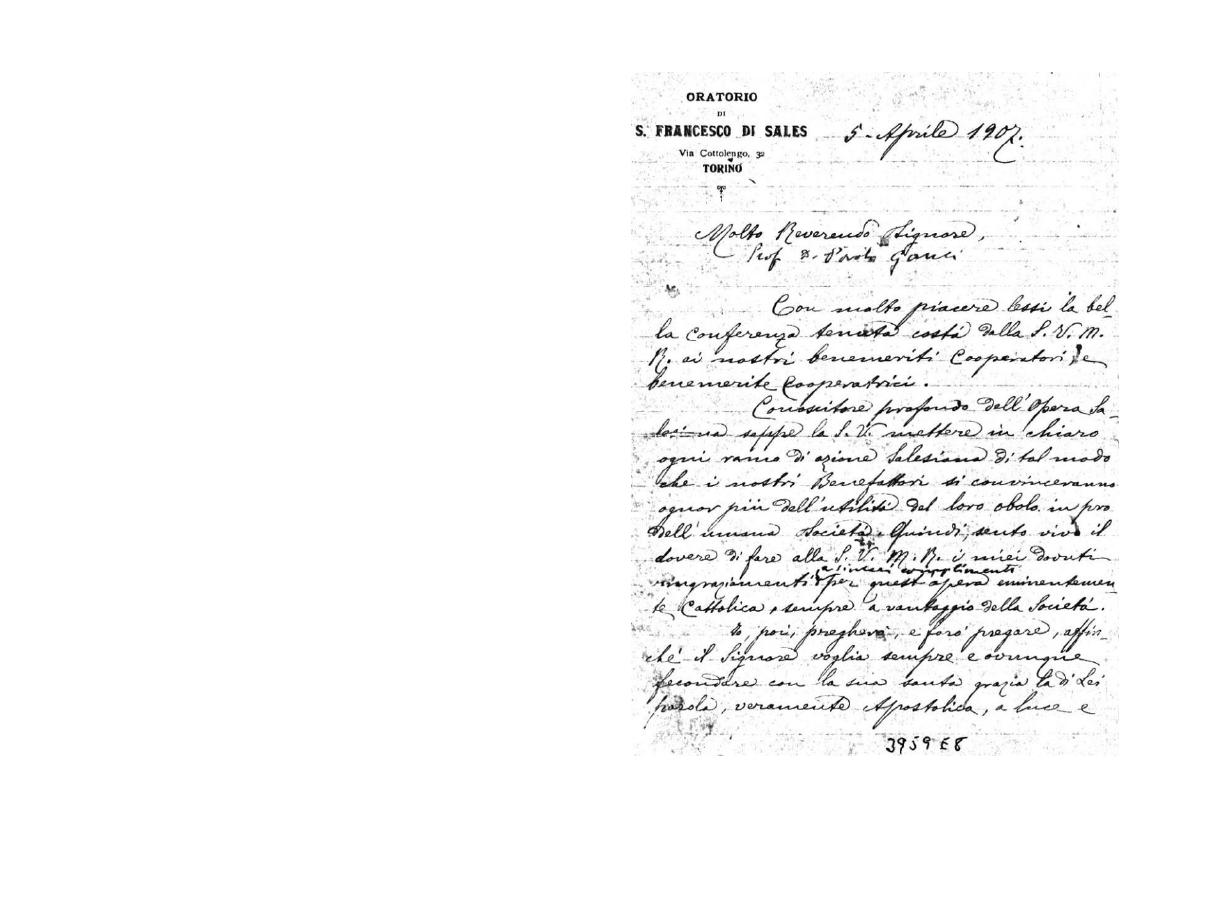 ORATORIO
DI
S. FRANCESCO DI SALES
Via Cottolengo, 32
TORINO
5 - Aprile 1907.
Molto Reverendo Signore,
Prof. D. Paolo
Con molto piacere lessi la bel-
la conferenza tenuta costà dalla S. V. M.
R. ai nostri benemeriti Cooperatori e
benemerite Cooperatrici.
Conoscitore profondo dell'Opera Sa-
lesiana seppe la S. V. mettere in chiaro
ogni ramo di azione Salesiana di tal modo
che i nostri Benefattori si convinceranno
ognor più dell'utilità del loro obolo in pro
dell'umana Società. Quindi, sento vivo il
dovere di fare alla S. V. M. R. i miei dovuti
e sinceri complimenti
ringraziamenti per quest'opera eminentemen
te Cattolica, sempre a vantaggio della Società.
Io, poi, pregherò, e farò pregare, affin-
ché il Signore voglia sempre e ovunque
fecondare con la sua santa grazia la di Lei
parola, veramente Apostolica, a luce e
3959 E8